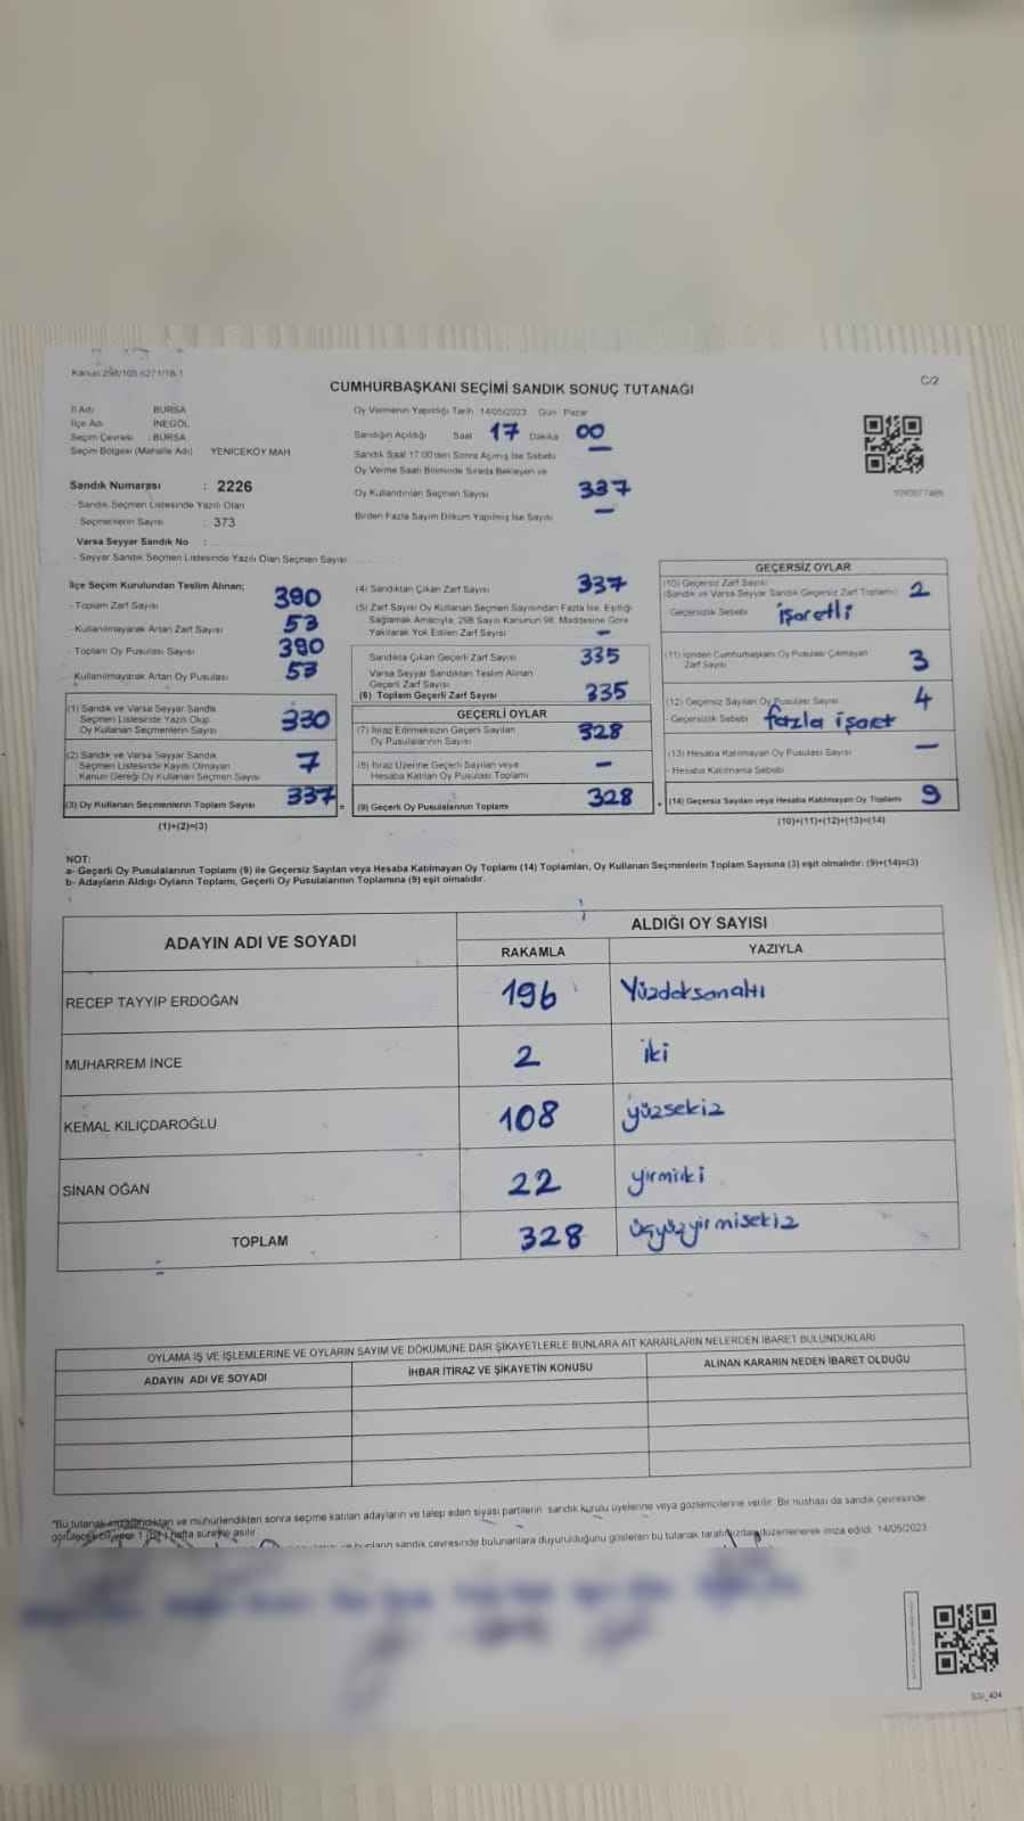 Kanun 298/105 6271/18-1
C/2
CUMHURBAŞKANI SEÇİMİ SANDIK SONUÇ TUTANAĞI
İl Adı BURSA
İlçe Adı İNEGÖL
Seçim Çevresi : BURSA
Seçim Bölgesi (Mahalle Adı) YENİCEKÖY MAH
Sandık Numarası : 2226
- Sandık Seçmen Listesinde Yazılı Olan
Seçmenlerin Sayısı : 373
Varsa Seyyar Sandık No :
- Seyyar Sandık Seçmen Listesinde Yazılı Olan Seçmen Sayısı
Oy Vermenin Yapıldığı Tarih 14/05/2023 Gün Pazar
Sandığın Açıldığı Saat 17 Dakika 00
Sandık Saat 17:00'den Sonra Açılmış İse Sebebi —
Oy Verme Saati Bitiminde Sırada Bekleyen ve
Oy Kullandırılan Seçmen Sayısı 337
Birden Fazla Sayım Döküm Yapılmış İse Sayısı —
İlçe Seçim Kurulundan Teslim Alınan;
- Toplam Zarf Sayısı 390
- Kullanılmayarak Artan Zarf Sayısı 53
- Toplam Oy Pusulası Sayısı 390
- Kullanılmayarak Artan Oy Pusulası 53
(1) Sandık ve Varsa Seyyar Sandık
Seçmen Listesinde Yazılı Olup
Oy Kullanan Seçmenlerin Sayısı 330
(2) Sandık ve Varsa Seyyar Sandık
Seçmen Listesinde Kayıtlı Olmayan
Kanun Gereği Oy Kullanan Seçmen Sayısı 7
(3) Oy Kullanan Seçmenlerin Toplam Sayısı 337
(1)+(2)=(3)
(4) Sandıktan Çıkan Zarf Sayısı 337
(5) Zarf Sayısı Oy Kullanan Seçmen Sayısından Fazla İse, Eşitliği
Sağlamak Amacıyla, 298 Sayılı Kanunun 98. Maddesine Göre
Yakılarak Yok Edilen Zarf Sayısı —
Sandıkta Çıkan Geçerli Zarf Sayısı 335
Varsa Seyyar Sandıktan Teslim Alınan
Geçerli Zarf Sayısı
(6) Toplam Geçerli Zarf Sayısı 335
GEÇERLİ OYLAR
(7) İtiraz Edilmeksizin Geçerli Sayılan
Oy Pusulalarının Sayısı 328
(8) İtiraz Üzerine Geçerli Sayılan veya
Hesaba Katılan Oy Pusulası Toplamı —
(9) Geçerli Oy Pusulalarının Toplamı 328
GEÇERSİZ OYLAR
(10) Geçersiz Zarf Sayısı
(Sandık ve Varsa Seyyar Sandık Geçersiz Zarf Toplamı) 2
- Geçersizlik Sebebi işaretli
(11) İçinden Cumhurbaşkanı Oy Pusulası Çıkmayan
Zarf Sayısı 3
(12) Geçersiz Sayılan Oy Pusulası Sayısı 4
- Geçersizlik Sebebi fazla işaret
(13) Hesaba Katılmayan Oy Pusulası Sayısı —
- Hesaba Katılmama Sebebi
(14) Geçersiz Sayılan veya Hesaba Katılmayan Oy Toplamı 9
(10)+(11)+(12)+(13)=(14)
NOT:
a- Geçerli Oy Pusulalarının Toplamı (9) ile Geçersiz Sayılan veya Hesaba Katılmayan Oy Toplamı (14) Toplamları, Oy Kullanan Seçmenlerin Toplam Sayısına (3) eşit olmalıdır: (9)+(14)=(3)
b- Adayların Aldığı Oyların Toplamı, Geçerli Oy Pusulalarının Toplamına (9) eşit olmalıdır.
ADAYIN ADI VE SOYADI ALDIĞI OY SAYISI
RAKAMLA YAZIYLA
RECEP TAYYİP ERDOĞAN 196 Yüzdoksanaltı
MUHARREM İNCE 2 iki
KEMAL KILIÇDAROĞLU 108 yüzsekiz
SİNAN OĞAN 22 yirmiiki
TOPLAM 328 üçyüzyirmisekiz
OYLAMA İŞ VE İŞLEMLERİNE VE OYLARIN SAYIM VE DÖKÜMÜNE DAİR ŞİKAYETLERLE BUNLARA AİT KARARLARIN NELERDEN İBARET BULUNDUKLARI
ADAYIN ADI VE SOYADI İHBAR İTİRAZ VE ŞİKAYETİN KONUSU ALINAN KARARIN NEDEN İBARET OLDUĞU
"Bu tutanak ve mühürlendikten sonra seçime katılan adayların ve talep eden siyasi partilerin sandık kurulu üyelerine veya gözlemcilerine verilir. Bir nüshası da sandık çevresinde
hafta süreyle asılır
bunların sandık çevresinde bulunanlara duyurulduğunu gösteren bu tutanak tarafımızdan düzenlenerek imza edildi. 14/05/2023